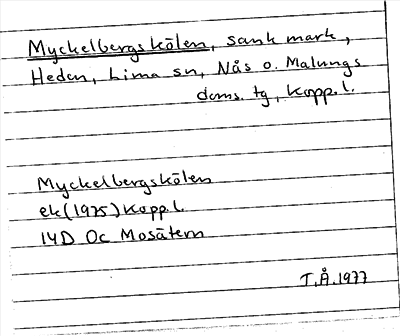 Myckelbergskölen, sank mark,
Heden, Lima sn, Nås o. Malungs
doms. tg, Kopp. l.
Myckelbergskölen
ek (1975) Kopp. l.
14D Oc Mosätern
T.Å. 1977